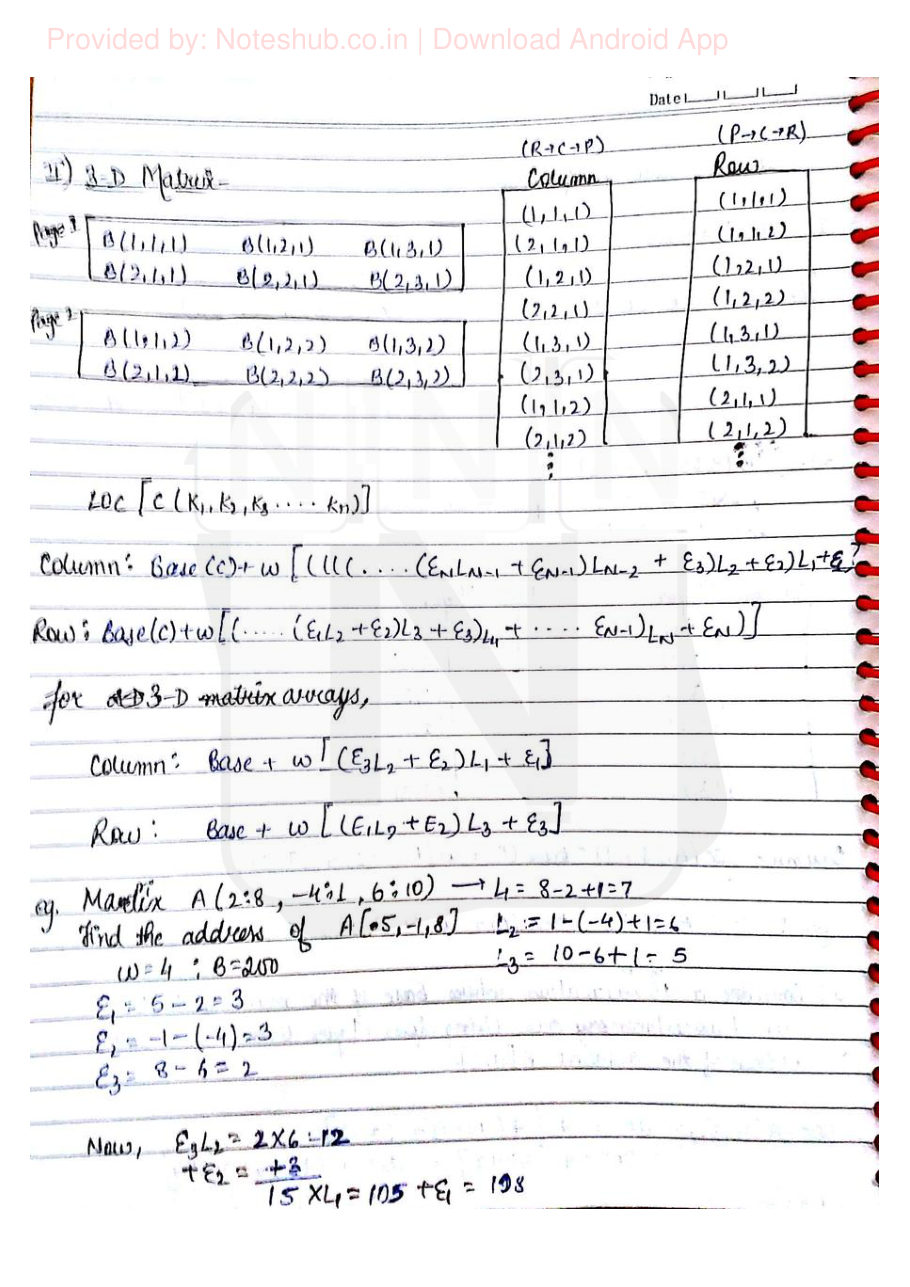 Provided by: Noteshub.co.in | Download Android App
Date
(R→C→P) (P→C→R)
3-D Matrix-
Column Row
Page 1
B(1,1,1) B(1,2,1) B(1,3,1)
B(2,1,1) B(2,2,1) B(2,3,1)
Page 2
B(1,1,2) B(1,2,2) B(1,3,2)
B(2,1,2) B(2,2,2) B(2,3,2)
(1,1,1)
(2,1,1)
(1,2,1)
(2,2,1)
(1,3,1)
(2,3,1)
(1,1,2)
(2,1,2)
(1,1,1)
(1,1,2)
(1,2,1)
(1,2,2)
(1,3,1)
(1,3,2)
(2,1,1)
(2,1,2)
LOC [C (K₁, K₂, K₃ .... Kn)]
Column: Base (C) + w [((((.... (ƐN LN-1 + ƐN-1) LN-2 + Ɛ3) L2 + Ɛ2) L1 + Ɛ1]
Row: Base(C) + w [(..... (Ɛ1L2 + Ɛ2) L3 + Ɛ3) L4 + .... ƐN-1) LN + ƐN)]
for 3-D matrix arrays,
Column: Base + w [(Ɛ3L2 + Ɛ2) L1 + Ɛ1]
Row: Base + w [(E1L2 + E2) L3 + Ɛ3]
eg. Matrix A (2:8, -4:1, 6:10) → L1 = 8-2+1=7
Find the address of A[5,-1,8] L2 = 1-(-4)+1=6
w=4 ; B=200 L3 = 10-6+1= 5
Ɛ1 = 5-2=3
Ɛ2 = -1-(-4)=3
Ɛ3 = 8-6=2
Now, Ɛ3L2 = 2X6 = 12
+Ɛ2 = +3
15 XL1 = 105 +Ɛ1 = 108